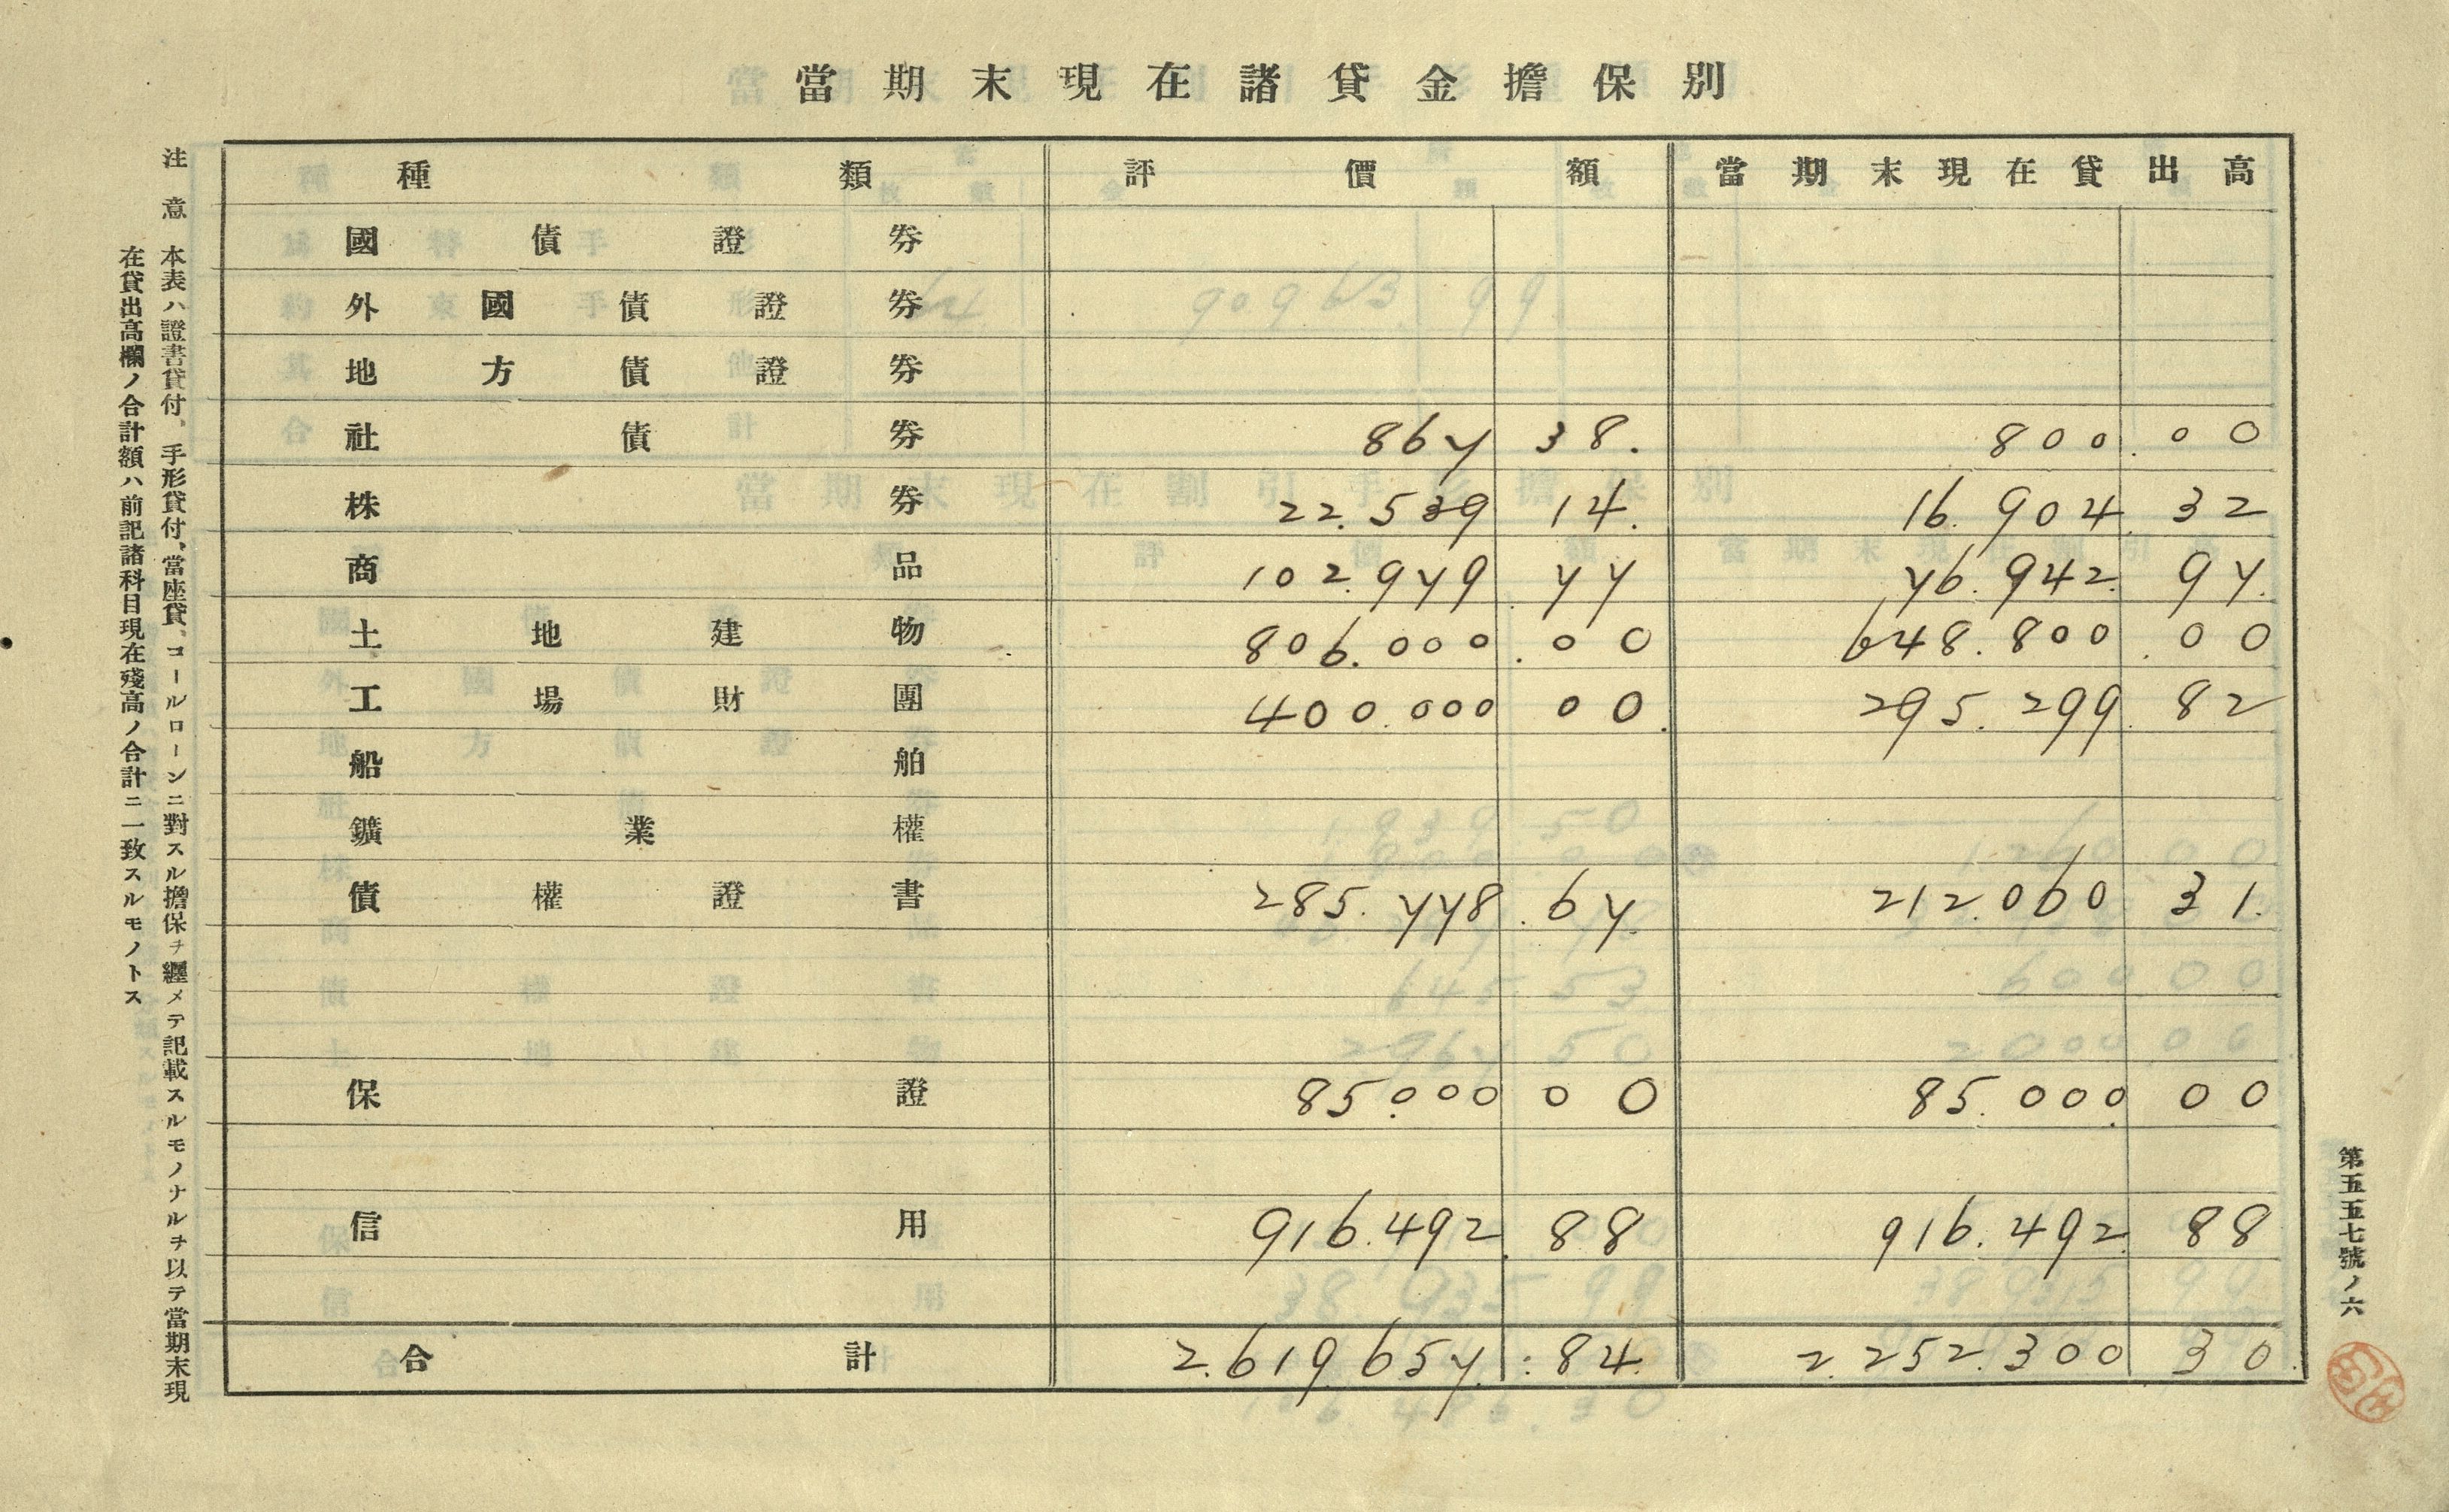 當期末現在諸貸金擔保別
種類 評價額 當期末現在貸出高
國債證券
外國債證券
地方債證券
社債券 867 38. 800.00
株券 22.539 14. 16.904.32
商品 102.979.77 76.942.97.
土地建物 806.000.00 648.800.00
工場財團 400.000 00. 295.299.82
船舶
鑛業權
債權證書 285.778.67. 212.060 31.
保證 85.000 00 85.000.00
信用 916.492.88 916.492.88
合計 2.619.657.84. 2.252.300 30.
注意 本表ハ證書貸付、手形貸付、當座貸、コールローンニ對スル擔保ヲ纒メテ記載スルモノナルヲ以テ當期末現
在貸出高欄ノ合計額ハ前記諸科目現在殘高ノ合計ニ一致スルモノトス
第五五七號ノ六